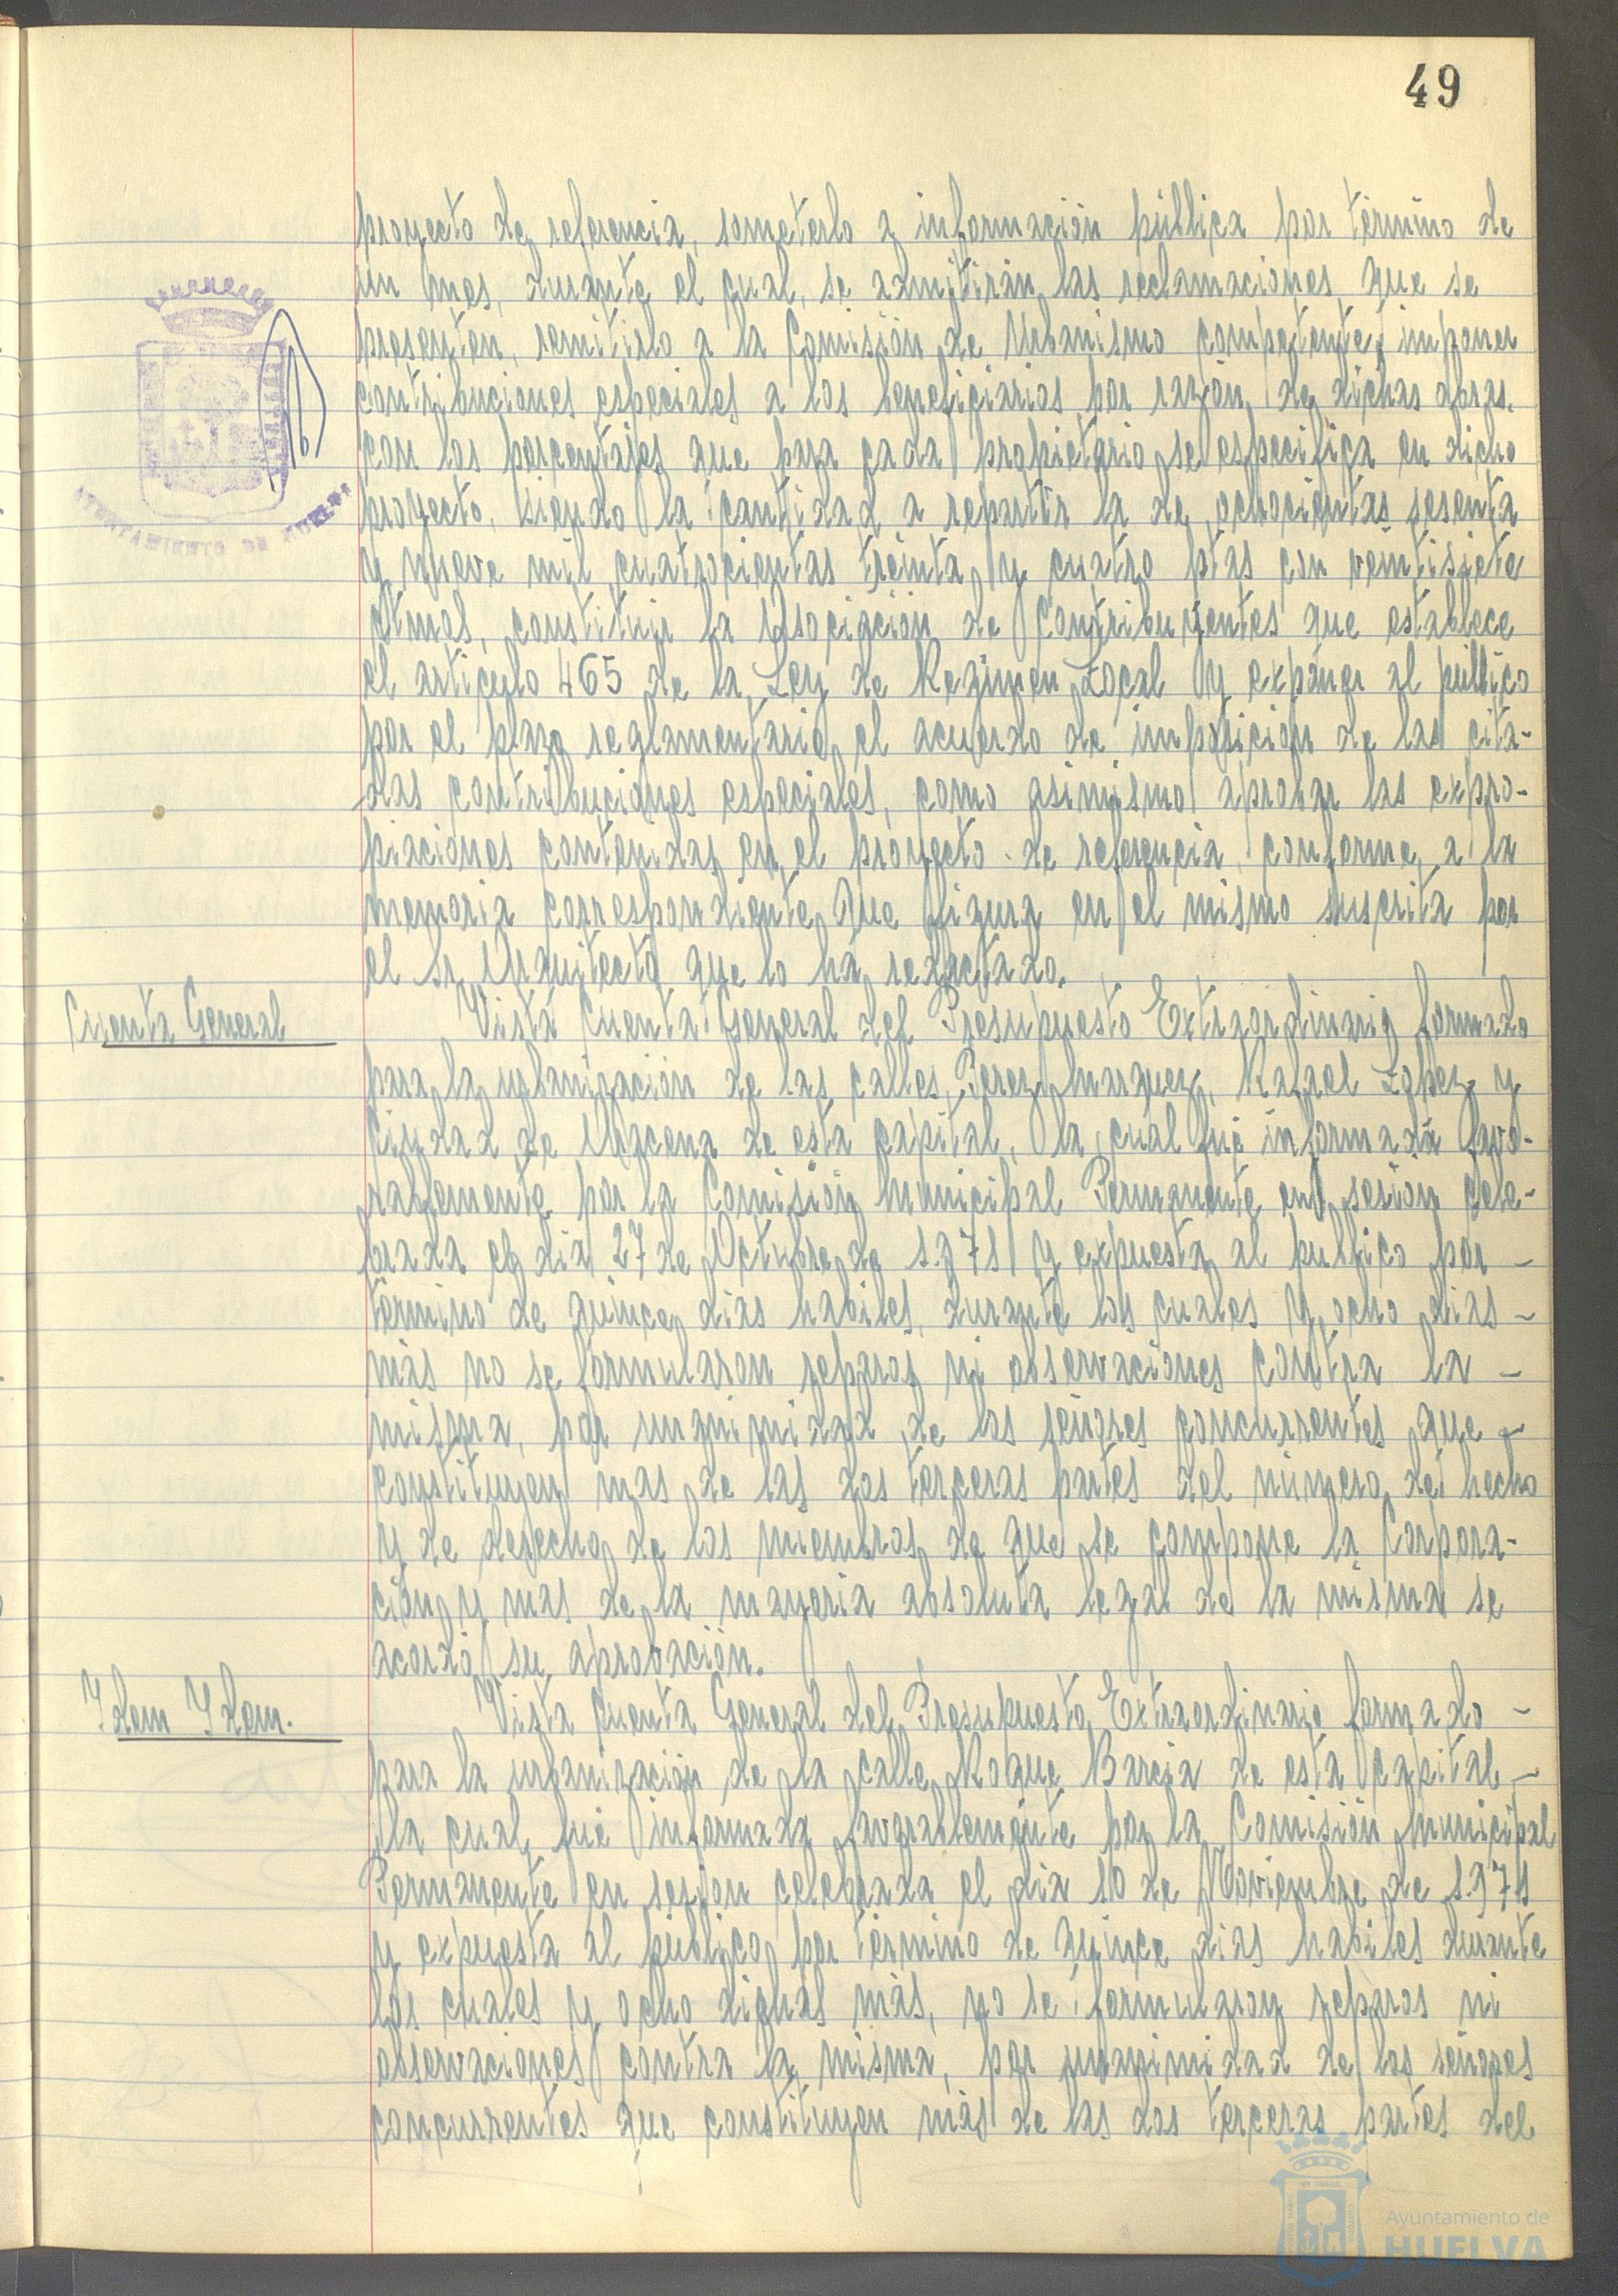 49
proyecto de referencia, someterlo a información pública por término de
un mes, durante el cual, se admitirán las reclamaciones que se
presenten, remitirlo a la Comisión de Urbanismo competente, imponer
contribuciones especiales a los beneficiarios por razón de dichas obras,
con los porcentajes que para cada propietario se especifica en dicho
proyecto, siendo la cantidad a repartir la de ochocientas sesenta
y nueve mil cuatrocientas treinta y cuatro ptas con veintisiete
ctmos, constituir la Asociación de Contribuyentes que establece
el artículo 465 de la Ley de Regimen Local y exponer al público
por el plazo reglamentario el acuerdo de imposición de las cita-
das contribuciones especiales, como asimismo aprobar las expro-
piaciones contenidas en el proyecto de referencia, conforme a la
memoria correspondiente que figura en el mismo suscrita por
el Sr. Arquitecto que lo ha redactado.
Cuenta General
Vista Cuenta General del Presupuesto Extraordinario formado
para la urbanización de las calles, Perez Marquez, Rafael Lopez y
Ciudad de Aracena de esta capital, la cual fué informada favo-
rablemente por la Comisión Municipal Permanente en sesion cele-
brada el dia 27 de Octubre de 1.971 y expuesta al publico por -
término de quince dias habiles, durante los cuales y ocho dias -
más no se formularon reparos ni observaciones contra la -
misma, por unanimidad de los señores concurrentes que -
constituyen mas de las dos terceras partes del número de hecho
y de derecho de los miembros de que se compone la Corpora-
ción y mas de la mayoria absoluta legal de la misma se
acordó su aprobación.
Idem Idem.
Vista Cuenta General del Presupuesto Extraordinario formado -
para la urbanización de la calle Roque Barcia de esta capital -
la cual fué informada favorablemente por la Comisión Municipal
Permanente en sesion celebrada el dia 10 de Noviembre de 1.971
y expuesta al público por término de quince dias habiles durante
los cuales y ocho dias más, no se formularon reparos ni
observaciones contra la misma, por unanimidad de los señores
concurrentes que constituyen más de las dos terceras partes del
AYUNTAMIENTO DE HUELVA
Ayuntamiento de
HUELVA